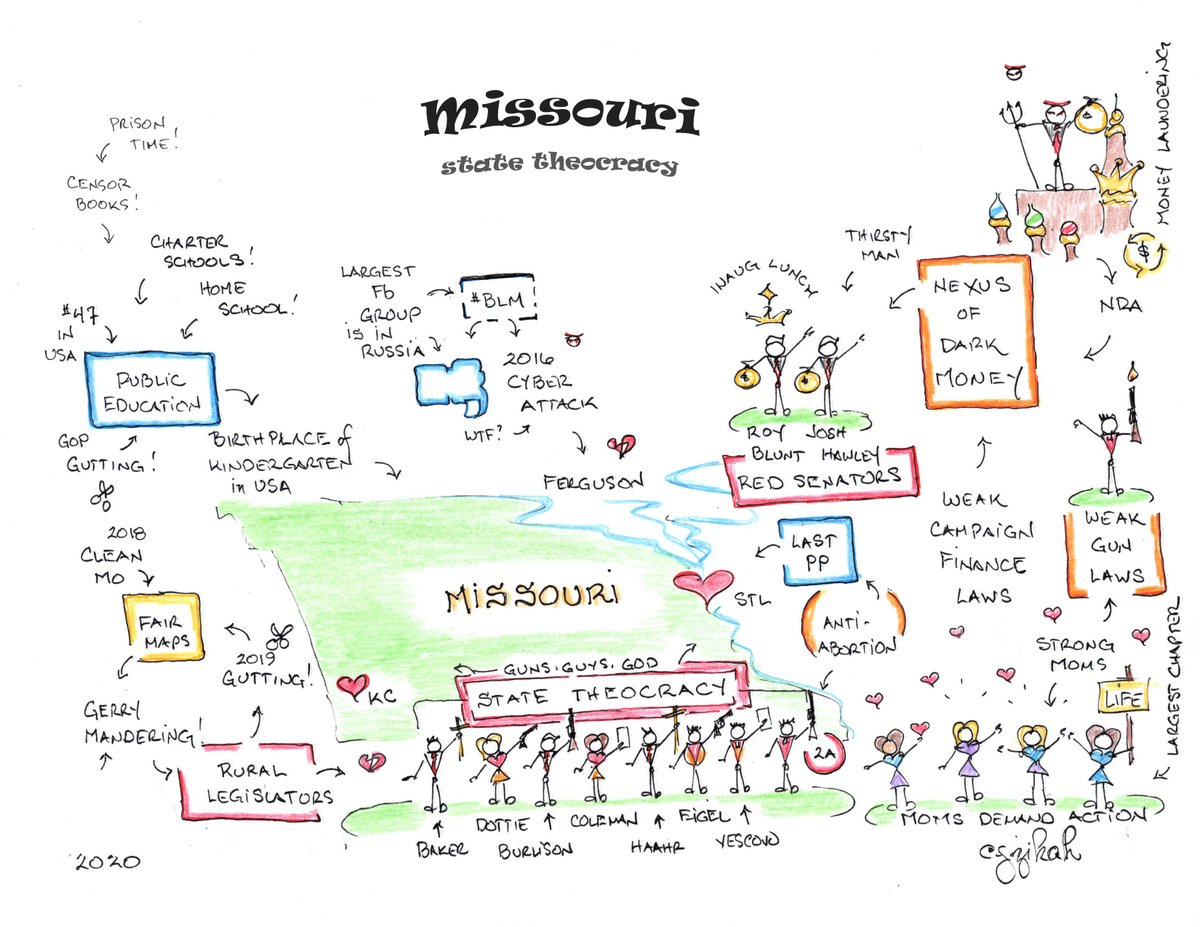 missouri
state theocracy
PRISON
TIME!
CENSOR
BOOKS!
CHARTER
SCHOOLS!
HOME
SCHOOL!
#47
IN
USA
PUBLIC
EDUCATION
GOP
GUTTING!
BIRTHPLACE of
KINDERGARTEN
in USA
2018
CLEAN
MO
FAIR
MAPS
2019
GUTTING!
GERRY
MANDERING!
RURAL
LEGISLATORS
2020
LARGEST
Fb
GROUP
IS IN
RUSSIA
#BLM
2016
CYBER
ATTACK
WTF?
FERGUSON
INAUG LUNCH
THIRSTY
MAN
ROY JOSH
BLUNT HAWLEY
RED SENATORS
NEXUS
OF
DARK
MONEY
$
MONEY LAUNDERING
NRA
WEAK
CAMPAIGN
FINANCE
LAWS
WEAK
GUN
LAWS
LAST
PP
ANTI-
ABORTION
MISSOURI
STL
KC
GUNS, GUYS, GOD
STATE THEOCRACY
2A
BAKER
DOTTIE
BURLISON
COLEMAN
HAAHR
EIGEL
VESCOVO
STRONG
MOMS
LIFE
LARGEST CHAPTER
MOMS DEMAND ACTION
cszikah